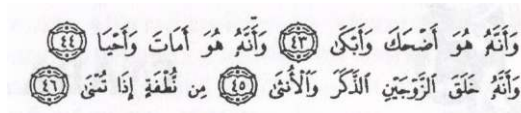 وَأَنَّهُۥ هُوَ أَضْحَكَ وَأَبْكَىٰ ٤٣ وَأَنَّهُۥ هُوَ أَمَاتَ وَأَحْيَا ٤٤
وَأَنَّهُۥ خَلَقَ ٱلزَّوْجَيْنِ ٱلذَّكَرَ وَٱلْأُنثَىٰ ٤٥ مِن نُّطْفَةٍ إِذَا تُمْنَىٰ ٤٦